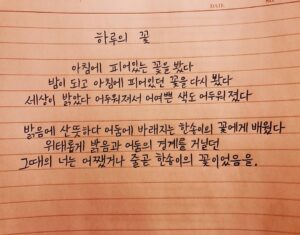 DATE
하루의 꽃
아침에 피어있는 꽃을 봤다
밤이 되고 아침에 피어있던 꽃을 다시 봤다
세상이 밝았다 어두워져서 어여쁜 색도 어두워졌다
밝음에 산뜻하다 어둠에 바래지는 한송이의 꽃에게 배웠다
위태롭게 밝음과 어둠의 경계를 거닐던
그때의 너는 어쨌거나 줄곧 한송이의 꽃이었음을.